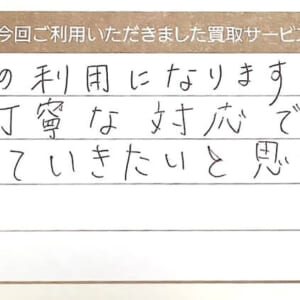 今回ご利用いただきました買取サービス
の利用になります
丁寧な対応で
ていきたいと思